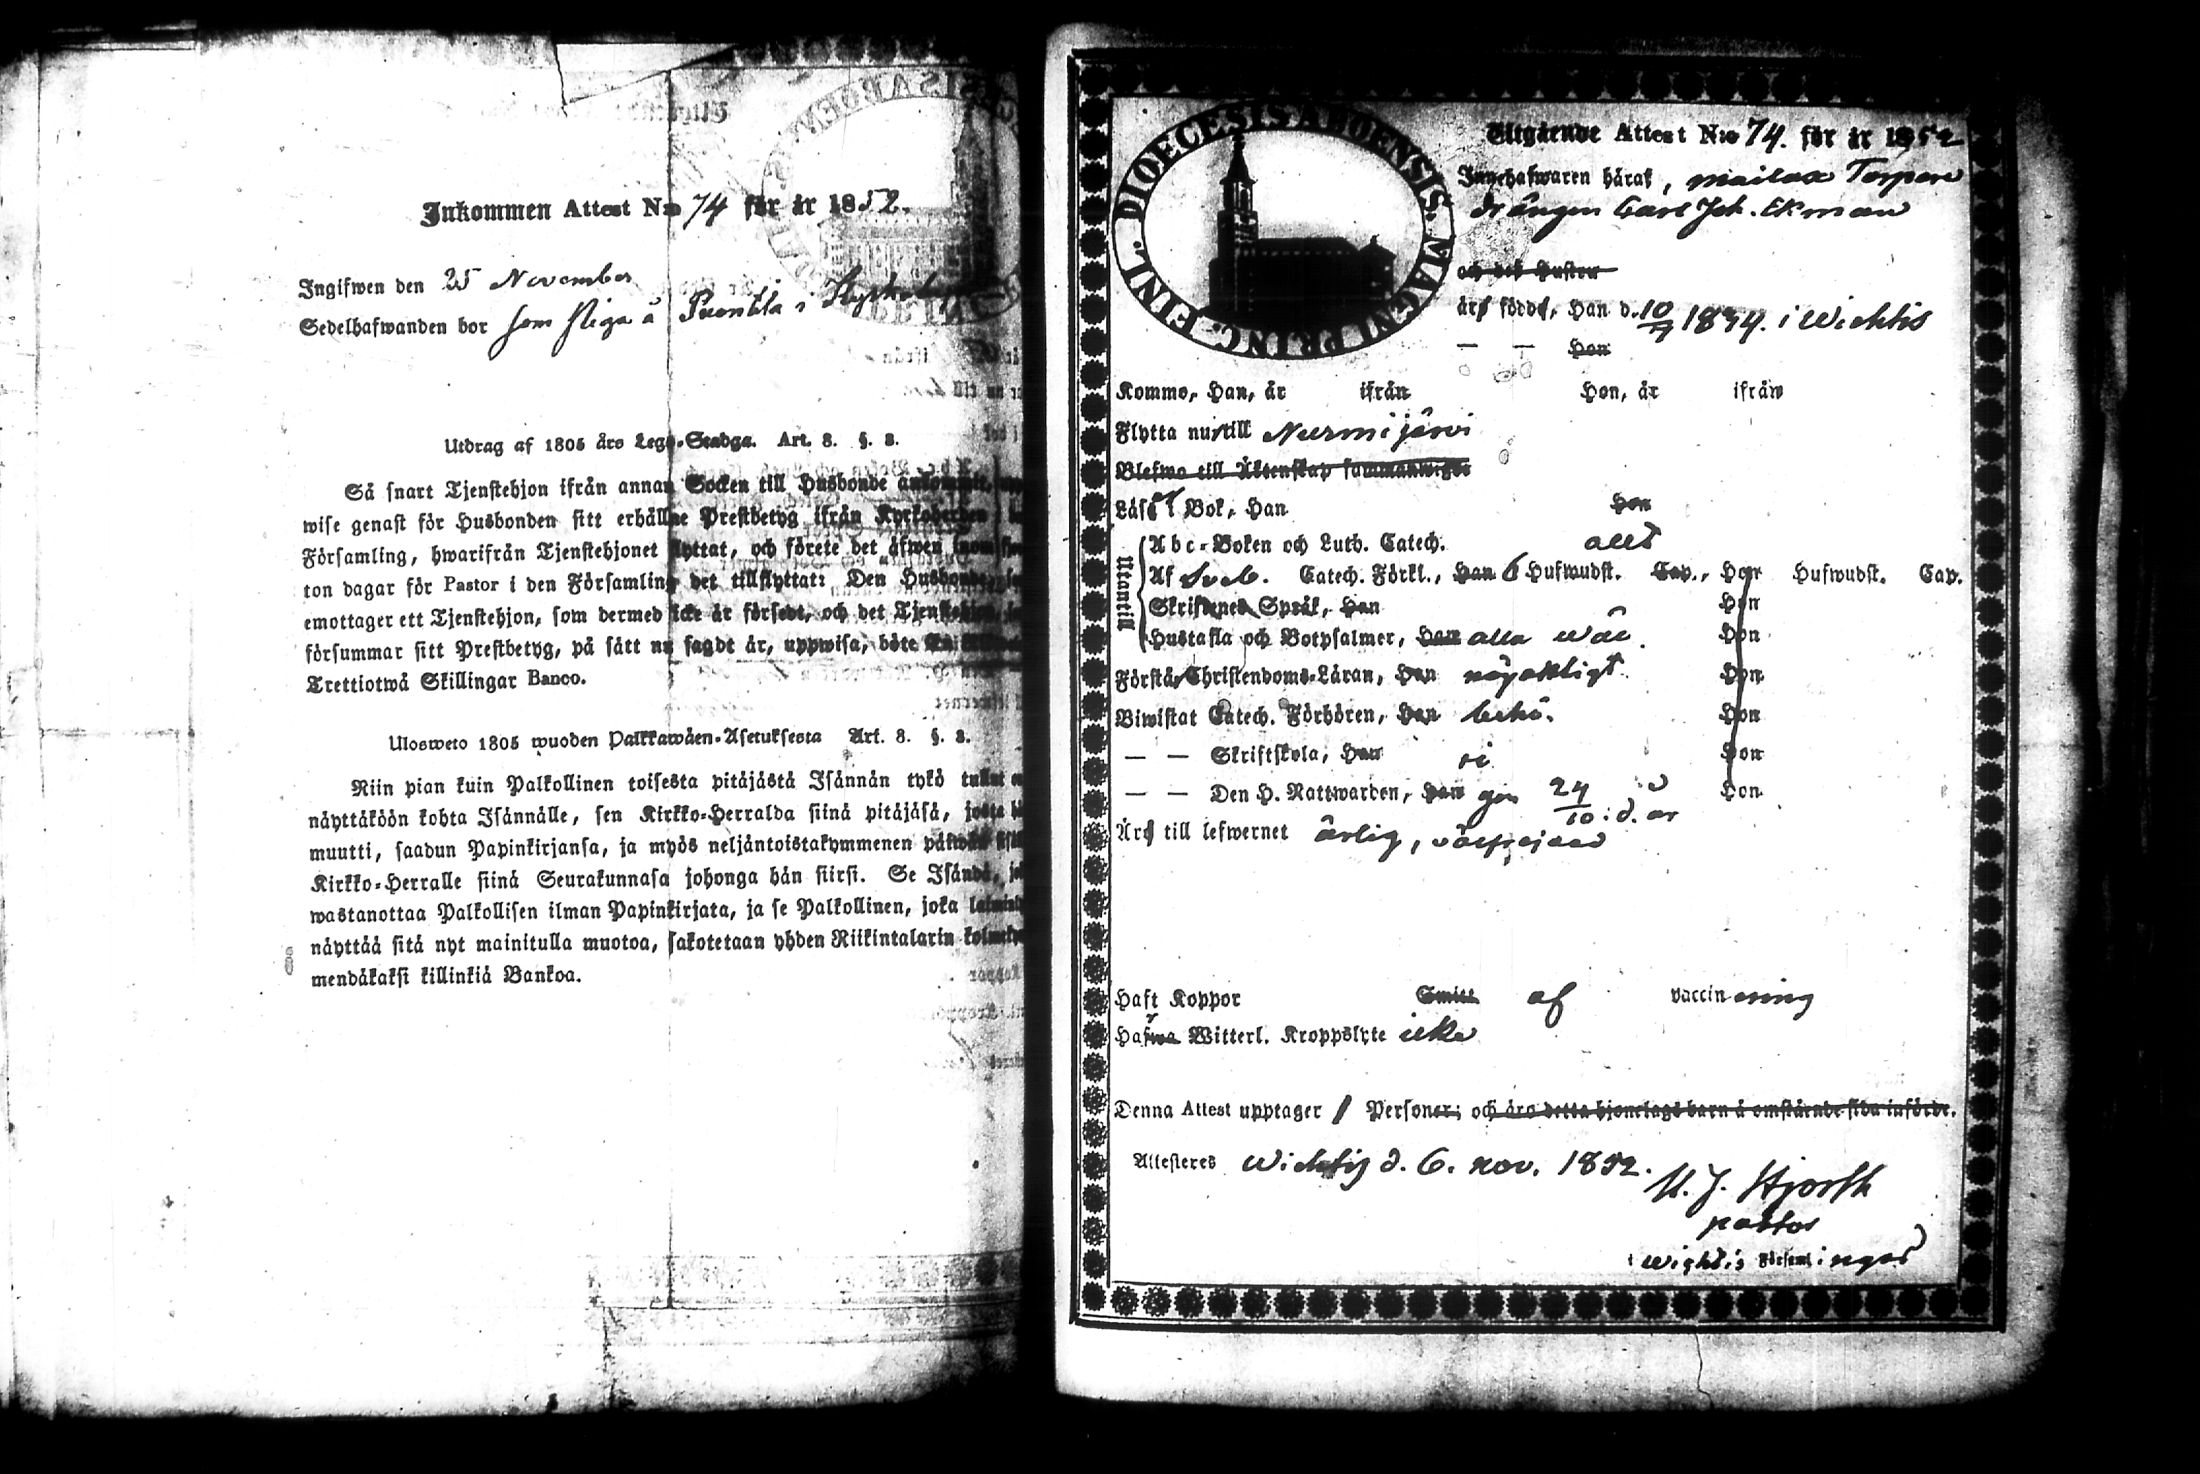 Inkommen Attest N:o 74 för år 1852.
Ingifwen den 25 November
Sedelhafwanden bor som piga å i
Utdrag af 1805 års Lego-Stadga. Art. 8. §. 8.
Så snart Tjenstehjon ifrån annan Socken till Husbonde ankommit,
wise genast för Husbonden sitt erhållne Prestbetyg ifrån Kyrkoherden i
Församling, hwarifrån Tjenstehjonet flyttat, och förete det äfwen inom
ton dagar för Pastor i den Församling det tillflyttat: Den Husbonde,
emottager ett Tjenstehjon, som dermed icke är försedt, och det Tjenstehjon,
försummar sitt Prestbetyg, på sätt nu sagdt är, uppwisa, böte
Trettiotwå Skillingar Banco.
Ulosweto 1805 wuoden Palkkawäen-Asetuksesta Art. 8. §. 8.
Niin pian kuin Palkollinen toisesta pitäjästä Isännän tykö tullut
näyttäköön kohta Isännälle, sen Kirkko-Herralda siinä pitäjäsä, josta
muutti, saadun Papinkirjansa, ja myös neljäntoistakymmenen päiwän
Kirkko-Herralle siinä Seurakunnasa johonga hän siirsi. Se Isändä,
wastanottaa Palkollisen ilman Papinkirjata, ja se Palkollinen, joka
näyttää sitä nyt mainitulla muotoa, sakotetaan yhden Riikintalarin
mendäkaksi killinkiä Bankoa.
DIOECESIS ABOENSIS. MAGNI PRINC. FINL.
Utgående Attest N:o 74. för år 1852
Innehafwaren häraf, mailax Torpare
drängen Carl Joh. Ekman
och des Hustru
äro födde, Han d. 10/7 1834. i Wichtis
— — Hon
Komme, Han, år ifrån Hon, år ifrån
Flytta nu till Nurmijärvi
Blefwo till Äktenskap sammanwigde
Läser i Bok, Han Hon
Utantill
Abc-Boken och Luth. Catech. allt
Af Sveb. Catech. Förkl., Han 6 Hufwudst. Cap., Hon Hufwudst. Cap.
Skriftenes Språk, Han Hon
Hustafla och Botpsalmer, Han alla wäl. Hon
Förstå Christendoms-Läran, Han nöjaktligt Hon
Biwistat Catech. Förhören, Han behö. Hon
— — Skriftskola, Han Hon
— — Den H. Nattwarden, Han 24/10 i d. år Hon
Äro till lefwernet ärlig, välfrejdad
Haft Koppor Smitt af vaccinering
Hafwa Witterl. Kroppslyte icke
Denna Attest upptager 1 Personer; och äro detta hjonelags barn å omstående sida införde.
Attesteres Wichtis d. 6. nov. 1852.
J. Hjorth
pastor
i Wichtis Församlingar